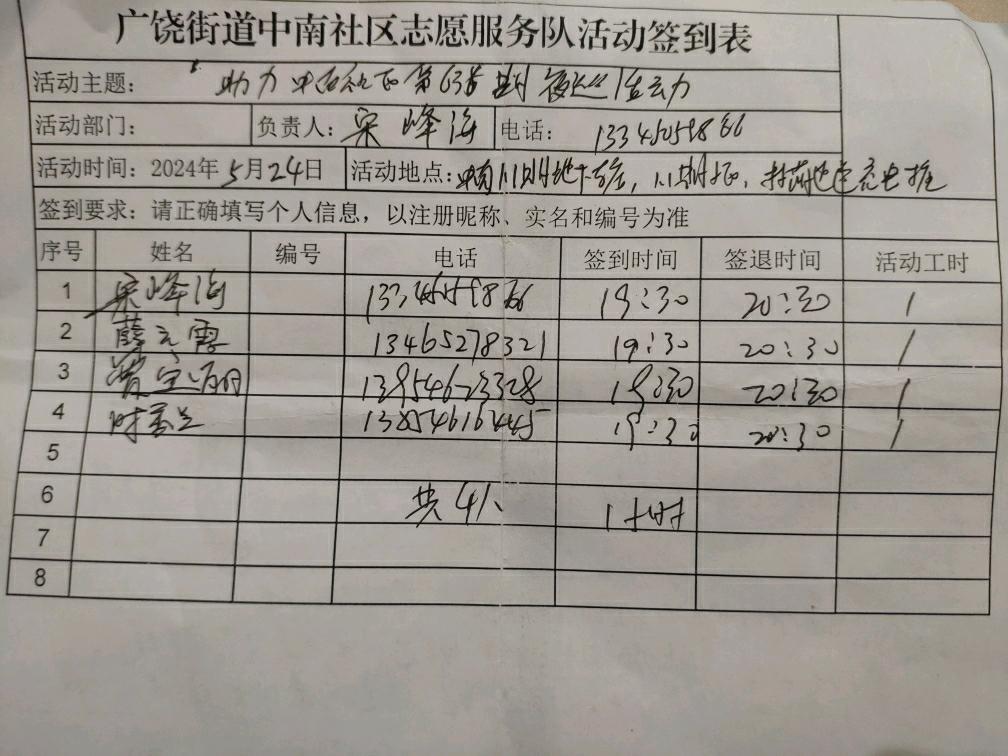 广饶街道中南社区志愿服务队活动签到表
活动主题： 助力中南社区第63期夜巡活动
活动部门： 负责人：宋峰海 电话：13346059866
活动时间：2024年5月24日 活动地点：
签到要求：请正确填写个人信息，以注册昵称、实名和编号为准
序号 姓名 编号 电话 签到时间 签退时间 活动工时
1 宋峰海 19:30 20:30 1
2 薛云霞 13465278321 19:30 20:30 1
3 13954623328 19:30 20:30 1
4 19:30 20:30 1
5
6 共4人 1小时
7
8